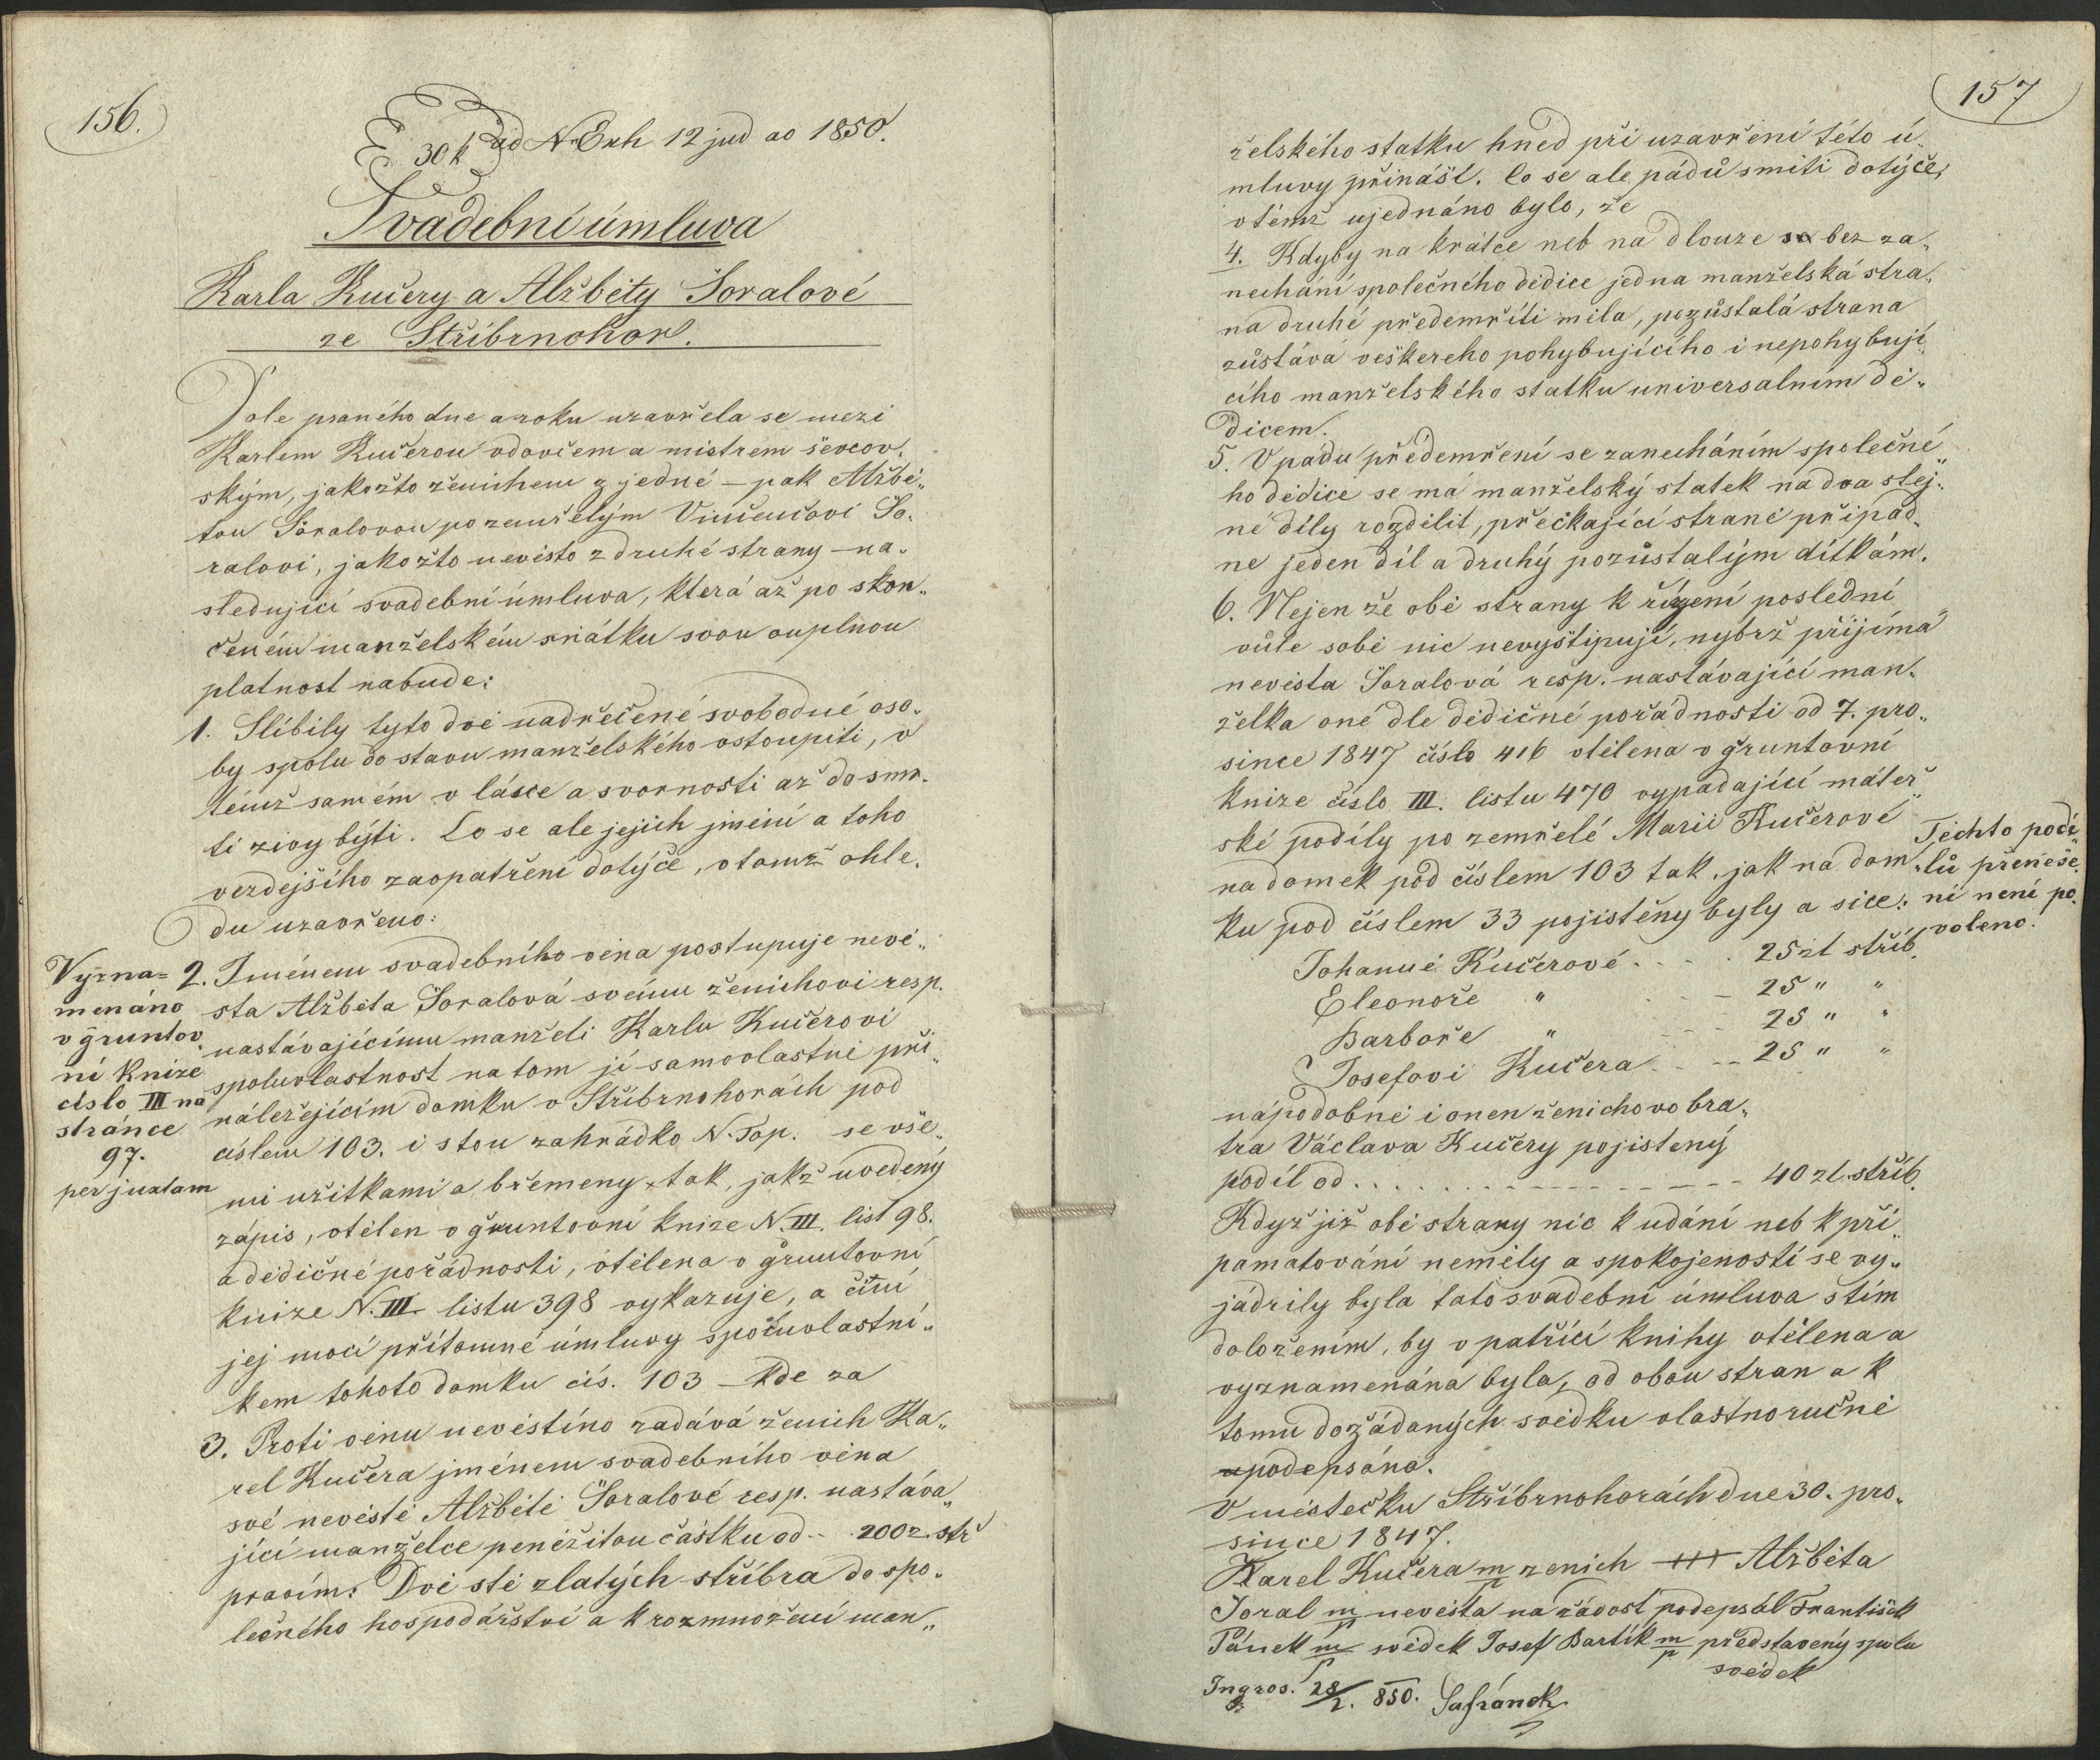 156.
30 k ad N Exh 12 jud ao 1850.
Svadební úmluva
Karla Kučery a Alžběty Soralové
ze Stříbrnohor.
Dole psaného dne a roku uzavřela se mezi
Karlem Kučerou vdovcem a mistrem ševcov„
ským, jakožto ženichem z jedné – pak Alžbě„
tou Soralovou po zemřelým Vincencovi So„
ralovi, jakožto nevěsto z druhé strany – na„
sledujicí svadební úmluva, která až po skon„
čeném manželském sňátku svou ouplnou
platnost nabude:
1. Slíbily tyto dvě nadřečené svobodné oso„
by spolu do stavu manželského vstoupiti, v
témž samém v lásce a svornosti až do smr„
ti živy býti. Co se ale jejich jmění a toho
verdejšího zaopatření dotýče, v tomž ohle„
du uzavřeno:
Vyzna=
menáno
v gruntov„
ní knize
císlo III na
stránce
97.
per juxtam
2. Jménem svadebního věna postupuje nevě„
sta Alžběta Soralová svému ženichovi resp.
nastávajícímu manželi Karlu Kučerovi
spoluvlastnost na tom jí samovlastně při„
náležejícím domku v Stříbrnohorách pod
číslem 103. i s tou zahrádko N. Top. se vše„
mi užitkami a břemeny tak, jakž uvedený
zápis, vtělen v gruntovní knize N. III. list 98.
a dědičné pořádnosti, vtělena v gruntovní
knize N. III. listu 398 vykazuje, a činí
jej mocí přítomné úmluvy spoluvlastní„
kem tohoto domku čís. 103 – kde za
3. Proti věnu nevěstino zadává ženich Ka„
rel Kučera jménem svadebního věna
své nevěstě Alžbětě Soralové resp. nastáva„
jící manželce peněžitou částku od .. 200 z. stř
pravím: Dvě stě zlatých stříbra do spo„
lečného hospodářství a k rozmnožení man„
157
želského statku hned při uzavření této ú„
mluvy přináší. Co se ale pádů smíti dotýče,
v témž ujednáno bylo, že
4. Kdyby na krátce neb na dlouze bez za„
nechání společného dědice jedna manželská stra„
na druhé předemříti měla, pozůstalá strana
zůstává veškereho pohybujícího i nepohybují„
cího manželského statku universalním dě„
dicem.
5. V pádu předemření se zanecháním společné„
ho dědice se má manželský statek na dva stej„
né díly rozdělit, přečkající straně připad„
ne jeden díl a druhý pozůstalým dítkám.
6. Nejen že obě strany k řízení poslední
vůle sobě nic nevyštipují, nýbrž přijímá
nevěsta Soralová resp. nastávající man„
želka oné dle dědičné pořádnosti od 7. pro„
since 1847 číslo 416 vtělena v gruntovní
knize číslo III. listu 470 vypadající máteř„
ské podíly po zemřelé Marii Kučerové
na domek pod číslem 103 tak, jak na dom„
ku pod číslem 33 pojištěny byly a sice:
Těchto podí„
lů přeneše„
ní není po„
voleno.
Johanně Kučerové . . . . 25 zl stříb.
Eleonoře " – 25 " "
Barboře " – 25 " "
Josefovi Kučera – 25 " "
nápodobně i onen ženichovo bra„
tra Václava Kučery pojistený
podíl od . . . . . . . 40 zl. stříb.
Když již obě strany nic k udání neb k při„
pamatování neměly a spokojeností se vy„
jádrily byla tato svadební úmluva s tím
doložením, by v patřící knihy vtělena a
vyznamenána byla, od obou stran a k
tomu dožádaných svědku vlastnoručně
podepsána.
V městečku Stříbrnohorách dne 30. pro„
since 1847.
Karel Kučera m/p ženich +++ Alžběta
Soral m/p nevěsta na žádost podepsál František
Pánek m/p svědek Josef Bartík m/p představený spolu
svědek
Ingros. 28/2. 850. Safránek